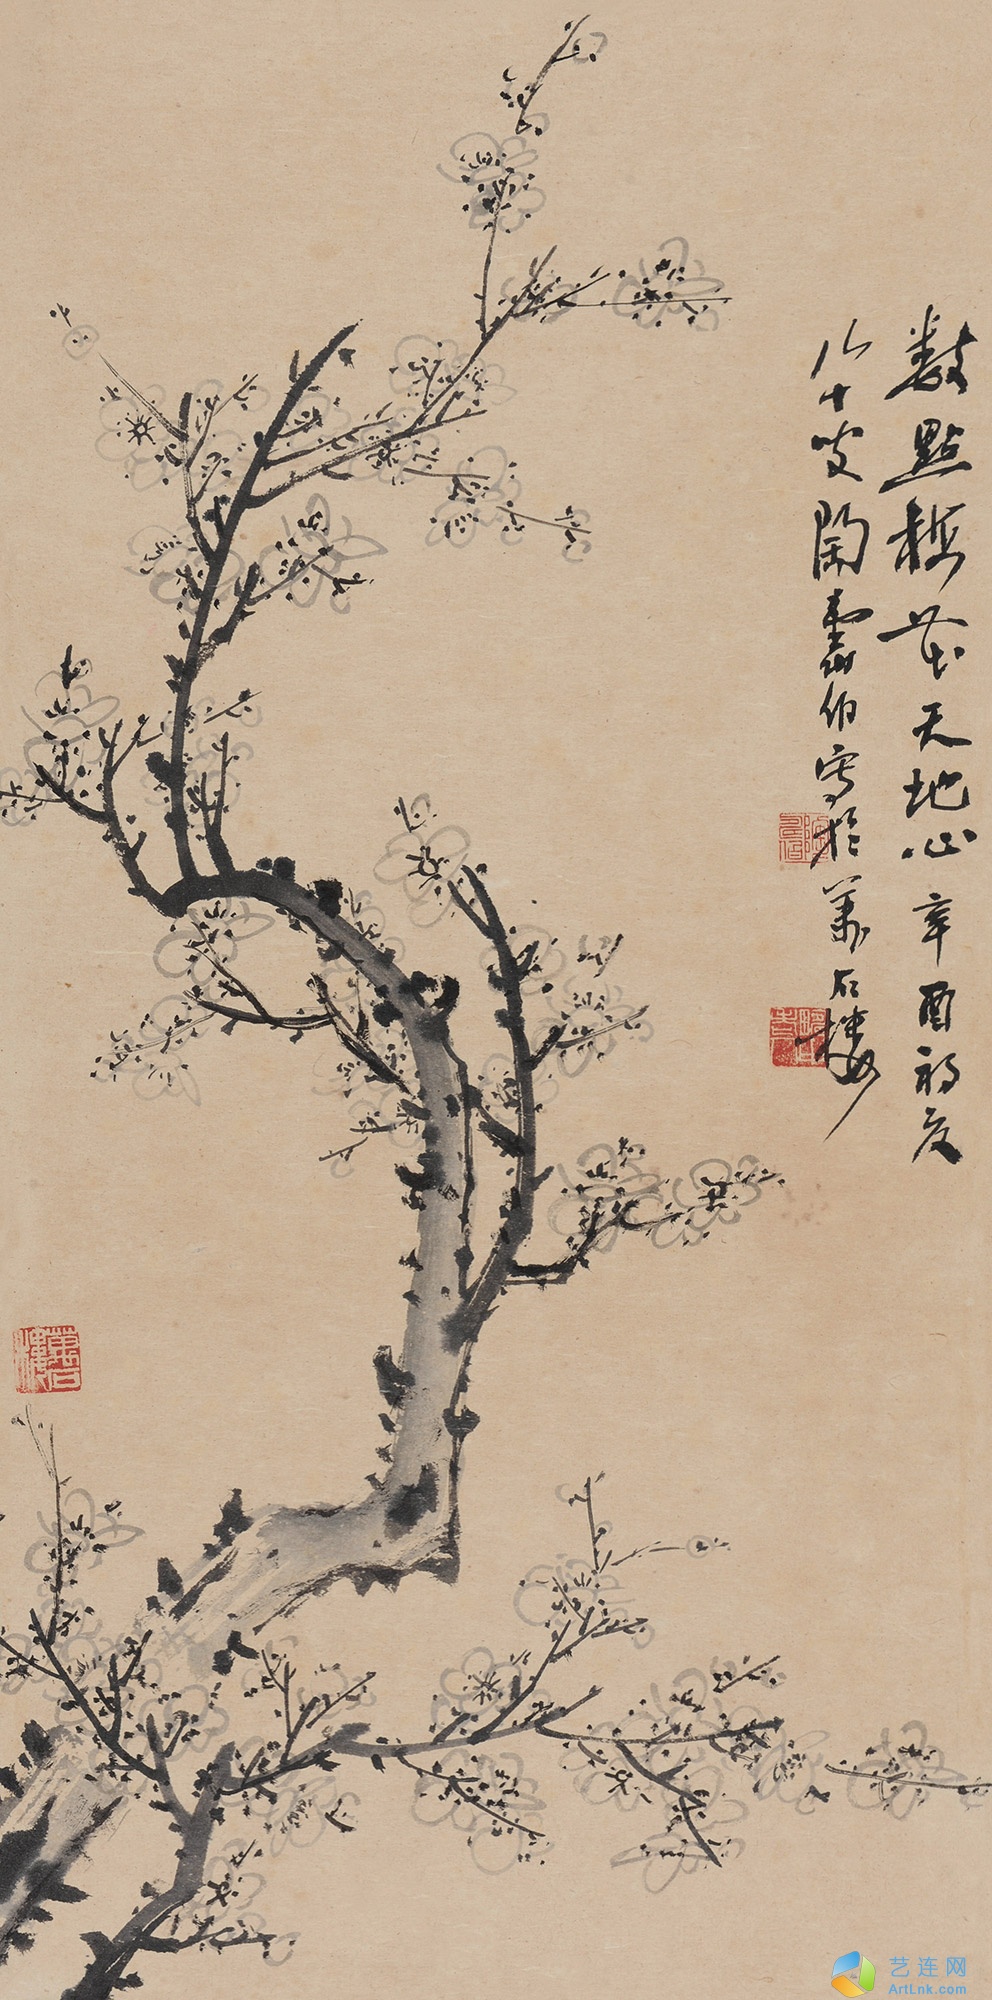 數點梅花天地心辛酉初夏
八十叟陶壽伯寫於萬石樓
萬石樓
艺连网
ArtLnk.com